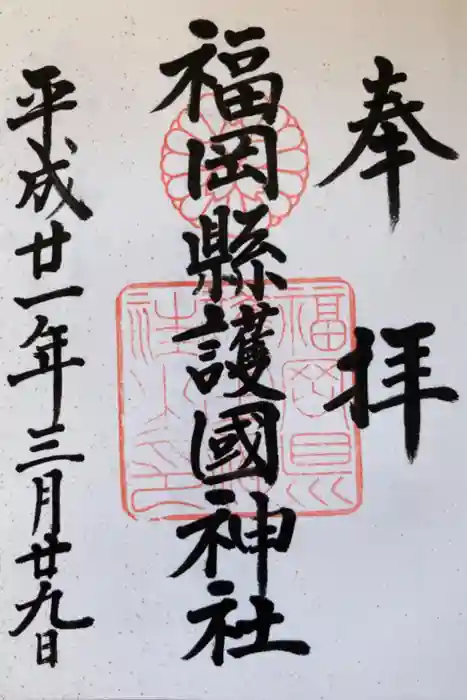 奉拝
福岡縣護國神社
平成廿一年三月廿九日